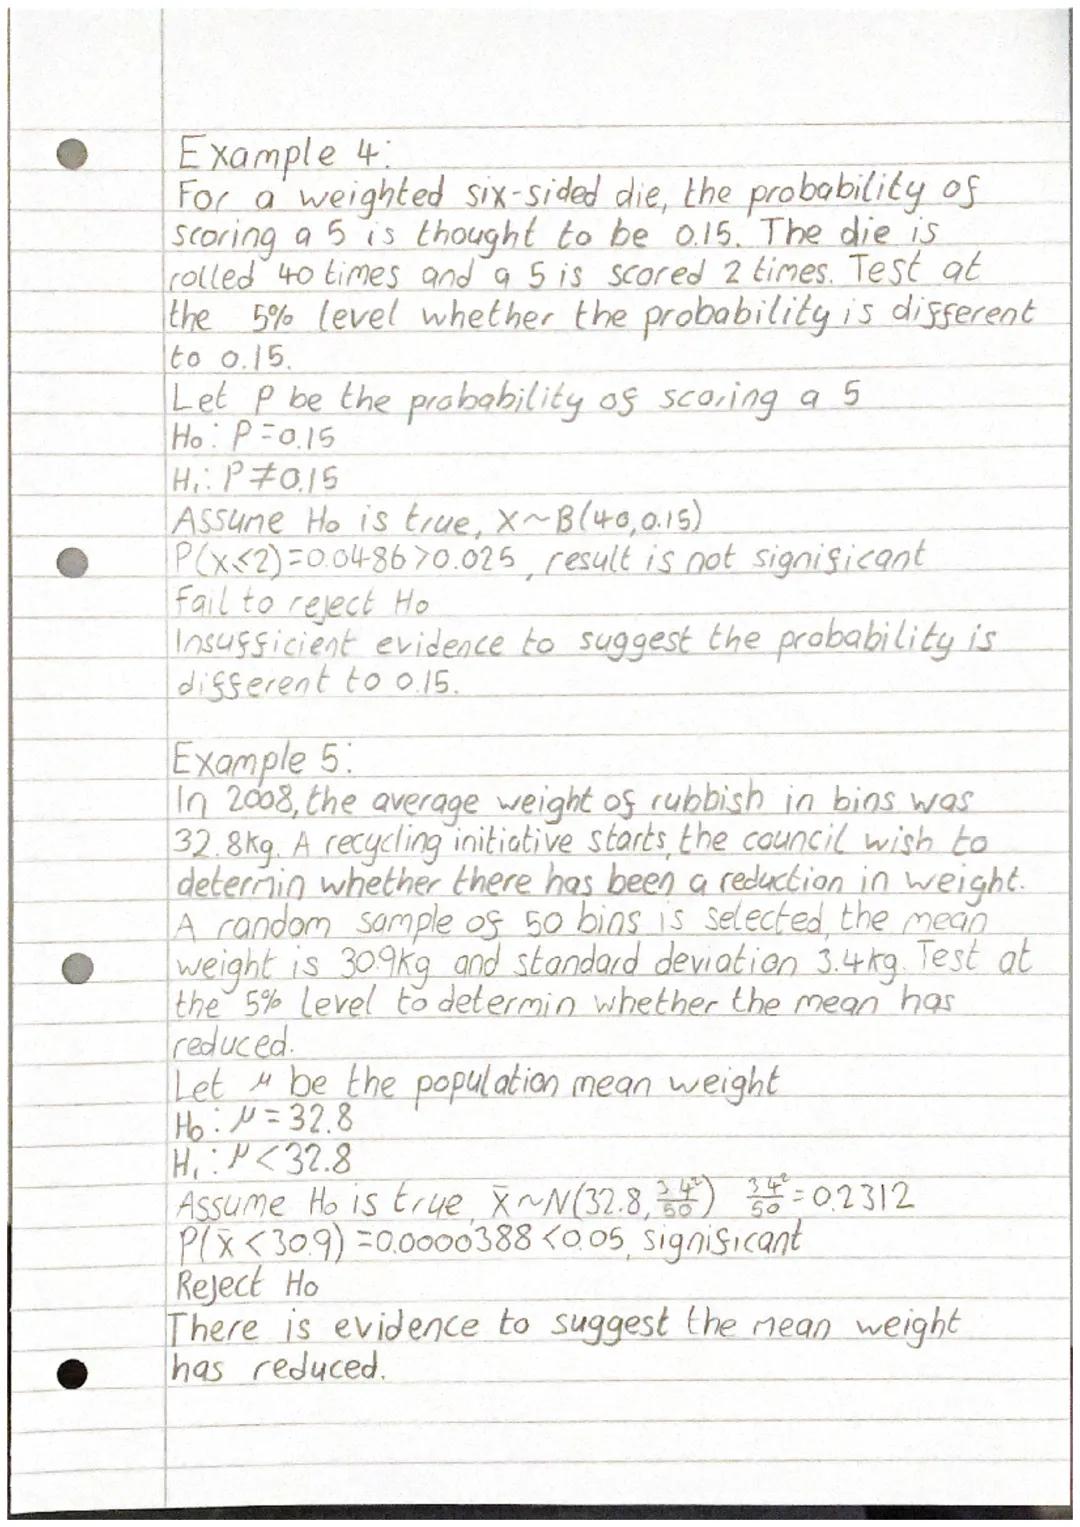 Example 4:
For a weighted six-sided die, the probability of
scoring a 5 is thought to be 0.15. The die is
rolled 40 times and a 5 is scored 2 times. Test at
the 5% level whether the probability is different
to 0.15.
Let p be the probability of scoring a 5
H₀: P=0.15
H₁: P≠0.15
Assume H₀ is true, X~B(40,0.15)
P(X≤2)=0.0486>0.025, result is not significant
Fail to reject H₀
Insufficient evidence to suggest the probability is
different to 0.15.
Example 5:
In 2008, the average weight of rubbish in bins was
32.8kg. A recycling initiative starts, the council wish to
determin whether there has been a reduction in weight.
A random sample of 50 bins is selected, the mean
weight is 30.9kg and standard deviation 3.4kg. Test at
the 5% level to determin whether the mean has
reduced.
Let μ be the population mean weight
H₀: μ=32.8
H₁: μ<32.8
Assume H₀ is true, x̄~N(32.8, 3.4²/50) 3.4²/50=0.2312
P(x̄<30.9)=0.0000388<0.05, significant
Reject H₀
There is evidence to suggest the mean weight
has reduced.